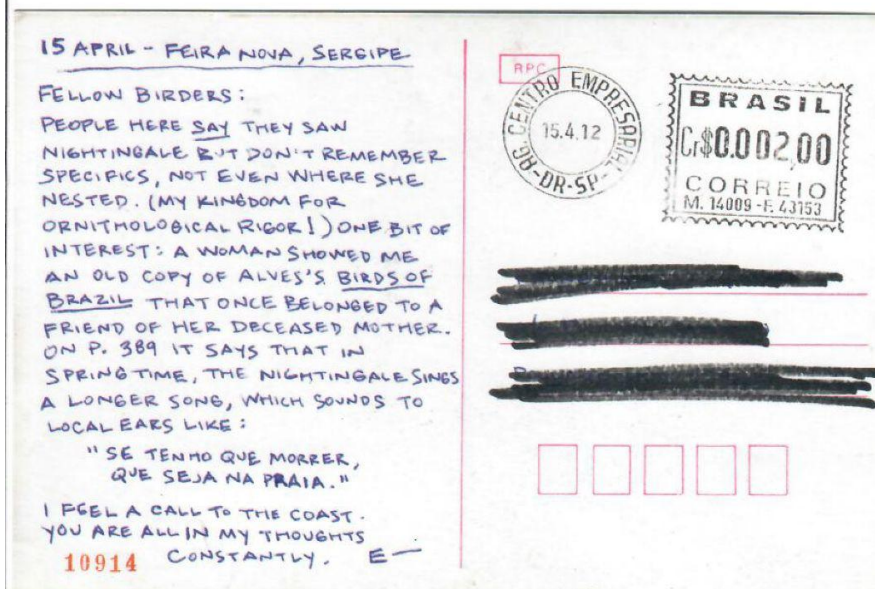 15 APRIL - FEIRA NOVA, SERGIPE
FELLOW BIRDERS:
PEOPLE HERE SAY THEY SAW
NIGHTINGALE BUT DON'T REMEMBER
SPECIFICS, NOT EVEN WHERE SHE
NESTED. (MY KINGDOM FOR
ORNITHOLOGICAL RIGOR!) ONE BIT OF
INTEREST: A WOMAN SHOWED ME
AN OLD COPY OF ALVES'S BIRDS OF
BRAZIL THAT ONCE BELONGED TO A
FRIEND OF HER DECEASED MOTHER.
ON P. 389 IT SAYS THAT IN
SPRINGTIME, THE NIGHTINGALE SINGS
A LONGER SONG, WHICH SOUNDS TO
LOCAL EARS LIKE:
"SE TENHO QUE MORRER,
QUE SEJA NA PRAIA."
I FEEL A CALL TO THE COAST.
YOU ARE ALL IN MY THOUGHTS
CONSTANTLY. E—
10914
RPC
AG. CENTRO EMPRESARIAL
15.4.12
-DR-SP-
BRASIL
Cr$0.002,00
CORREIO
M. 14009-F. 43153